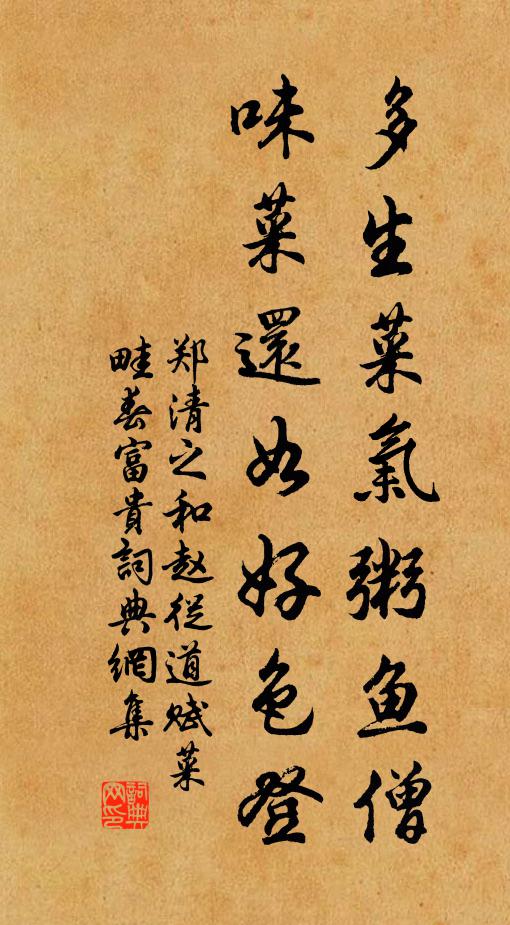 多生菜氣粥鱼僧
味菜還如好色登
郑清之和赵從道赋菜
畦春富貴詞典網集
詞典网印